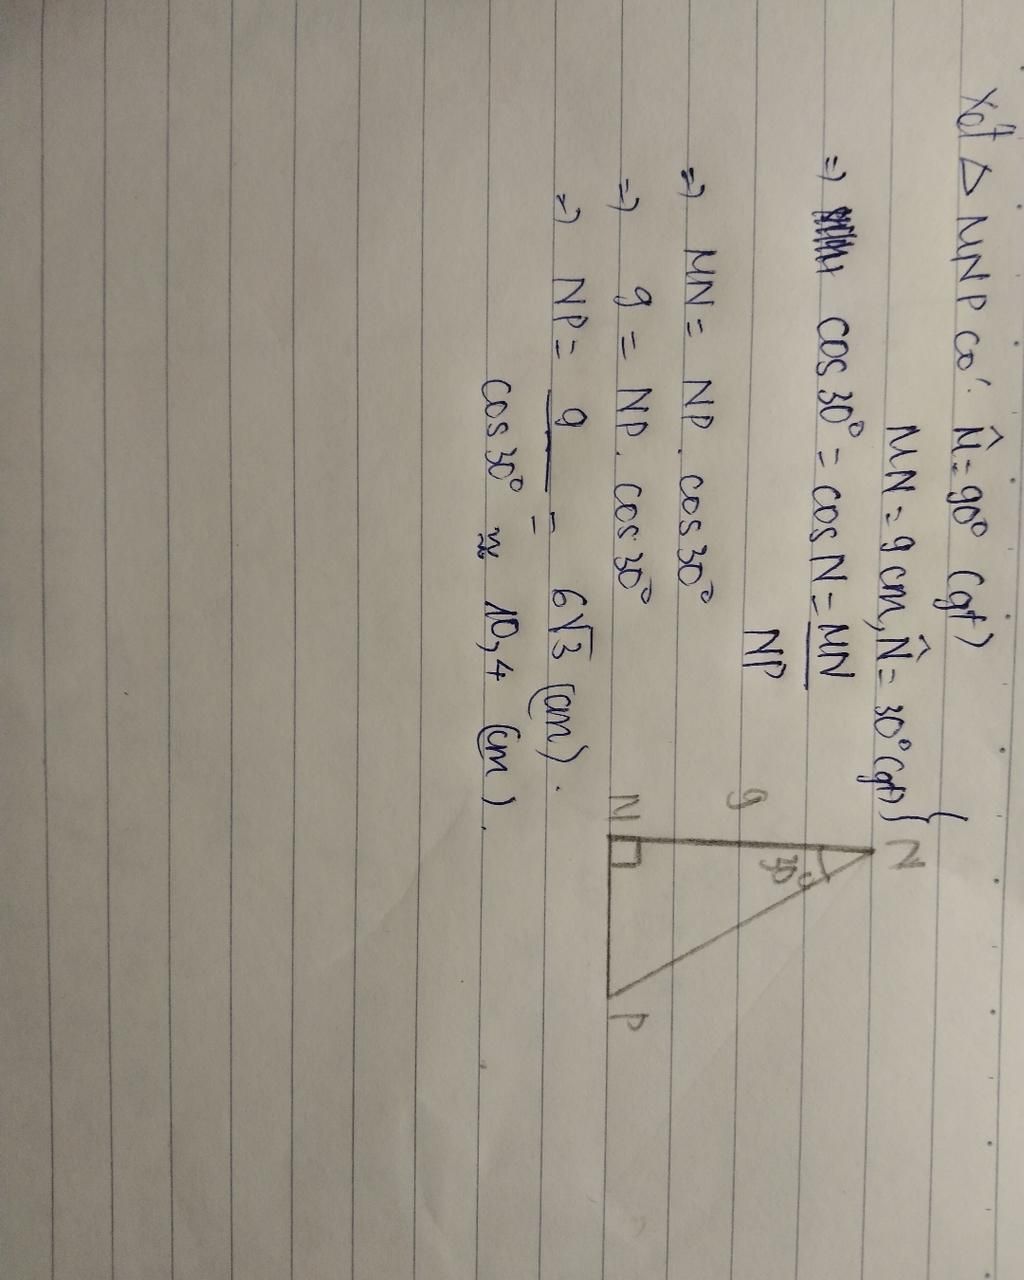 Xét Δ MNP có: M̂ = 90° (gt)
MN = 9 cm, N̂ = 30° (gt) }
=> cos 30° = cos N = MN
NP
=> MN = NP . cos 30°
=> 9 = NP . cos 30°
=> NP = 9 = 6√3 (cm).
cos 30° ≈ 10,4 (cm).
N
30°
9
M
P